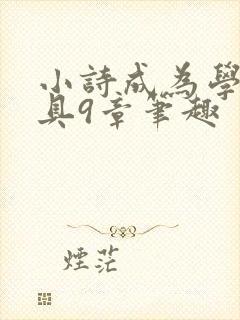 小詩成為學
具9章筆趣
煙茫